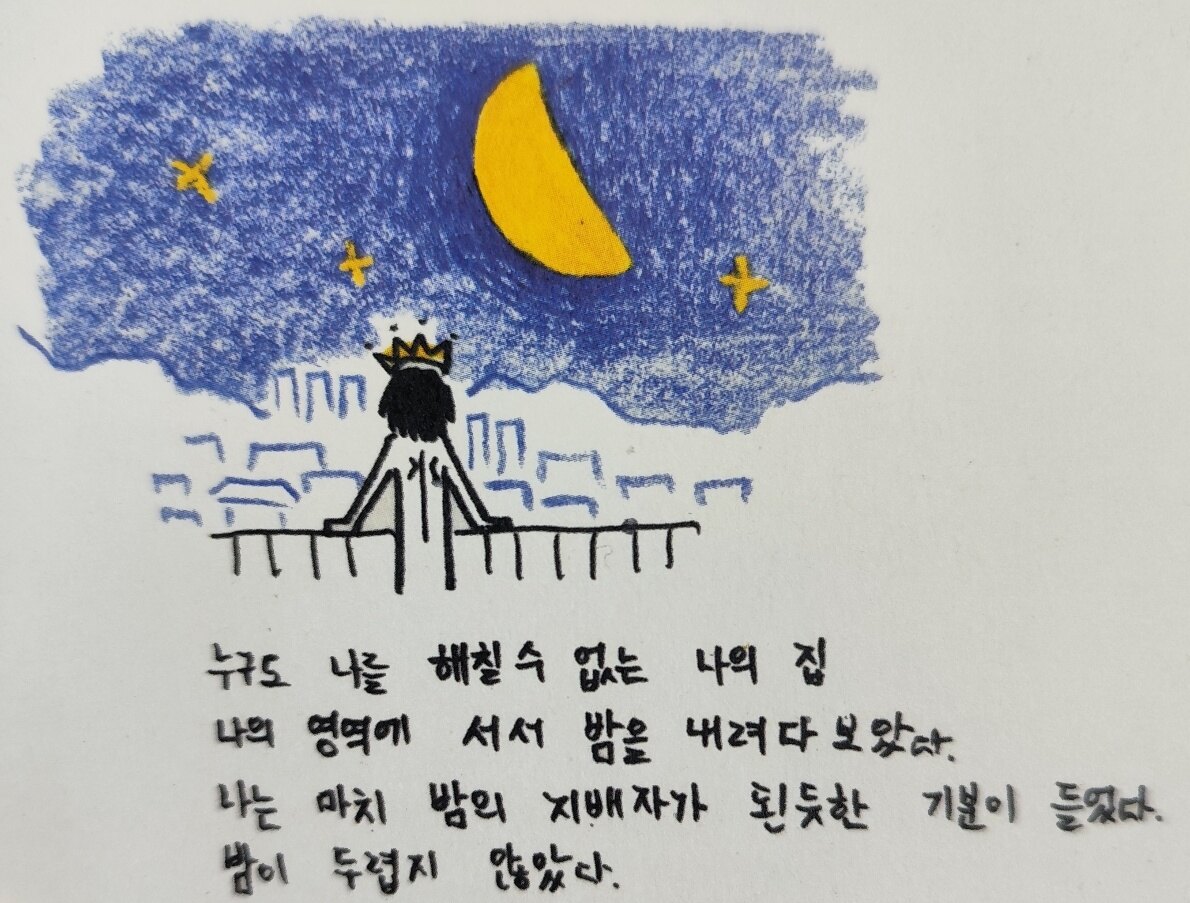 누구도 나를 해칠 수 없는 나의 집
나의 영역에 서서 밤을 내려다 보았다.
나는 마치 밤의 지배자가 된듯한 기분이 들었다.
밤이 두렵지 않았다.